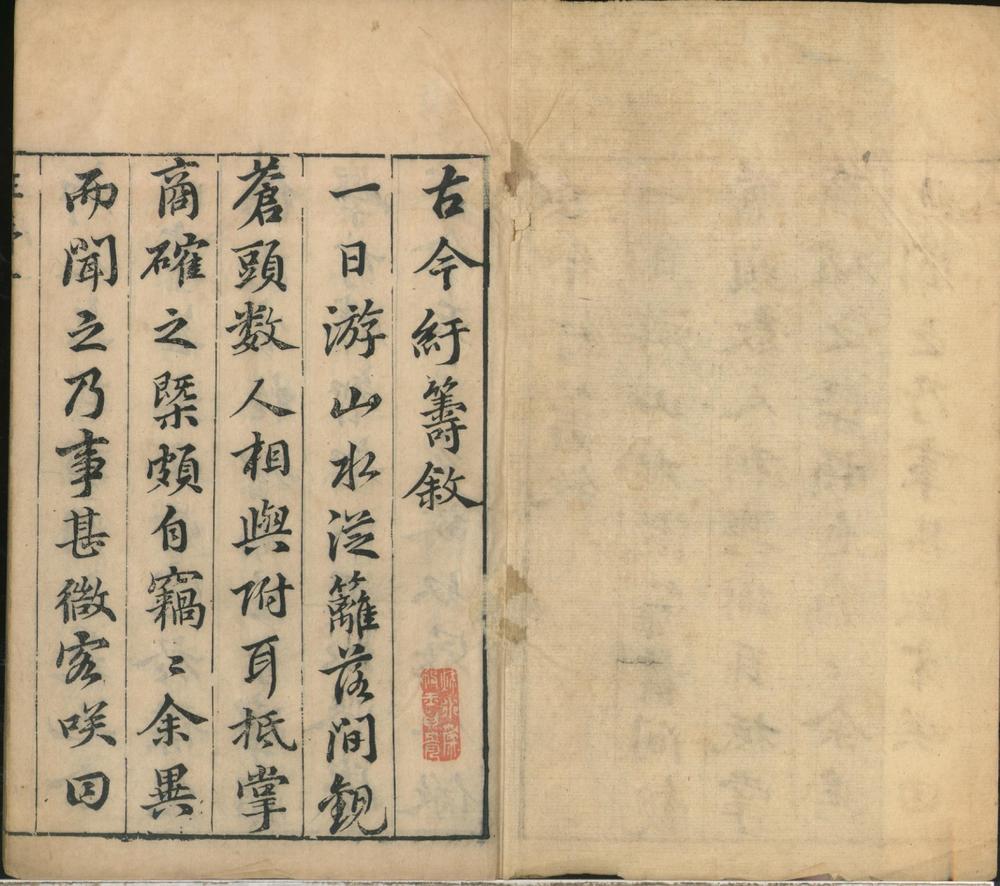 古今紆籌敘
一日游山水從籬落間覩
蒼頭数人相與附耳抵掌
商確之槩頗自竊〻余異
而聞之乃事甚微客咲曰